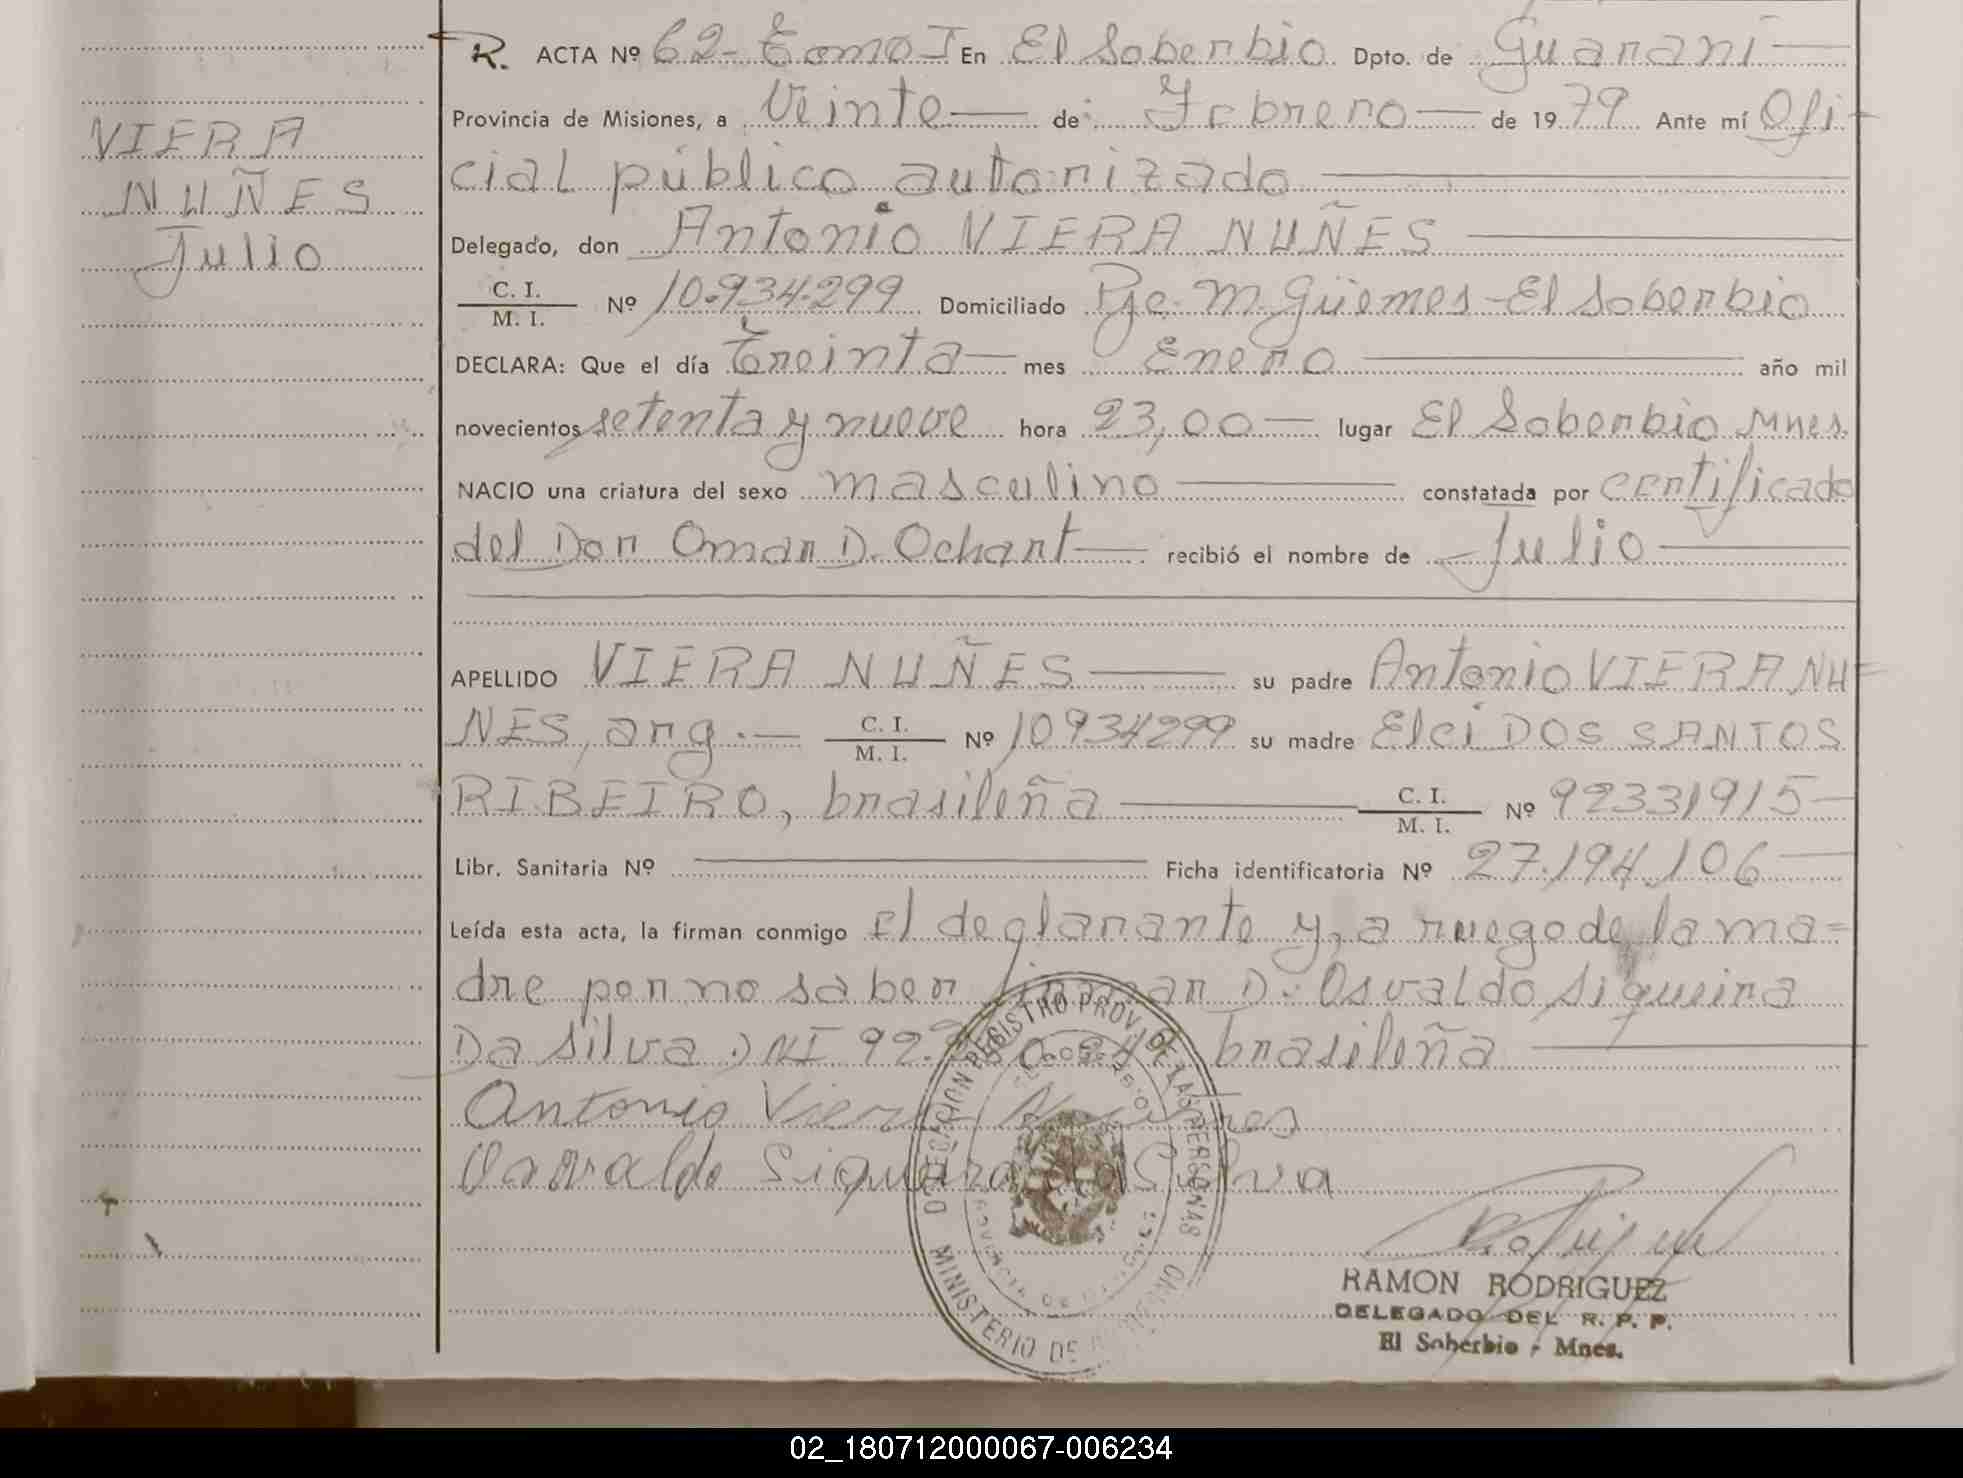 VIERA
NUÑES
Julio
R. ACTA Nº 62- Tomo I En El Soberbio Dpto. de Guaraní
Provincia de Misiones, a Veinte de Febrero de 1979 Ante mí Ofi-
cial público autorizado
Delegado, don Antonio VIERA NUÑES
C. I. / M. I. Nº 10.934.299 Domiciliado Pje. M. Güemes - El Soberbio
DECLARA: Que el día Treinta mes Enero año mil
novecientos setenta y nueve hora 23,00 lugar El Soberbio Mnes.
NACIO una criatura del sexo masculino constatada por certificado
del Don Omar D. Ochart recibió el nombre de Julio
APELLIDO VIERA NUÑES su padre Antonio VIERA NU=
NES, arg. C. I. / M. I. Nº 10934299 su madre Elci DOS SANTOS
RIBEIRO, brasileña C. I. / M. I. Nº 92331915
Libr. Sanitaria Nº Ficha identificatoria Nº 27.194.106
Leída esta acta, la firman conmigo El deglarante y, a ruego de la ma=
dre por no saber firmar D. Osvaldo Siqueira
Da Silva DNI 92. brasileña
Antonio Viera Nuñes
Osvaldo Siqueira Da Silva
DELEGACION REGISTRO PROV. DE LAS PERSONAS
MINISTERIO DE
RAMON RODRIGUEZ
DELEGADO DEL R. P. P.
El Soberbio - Mnes.
02_180712000067-006234